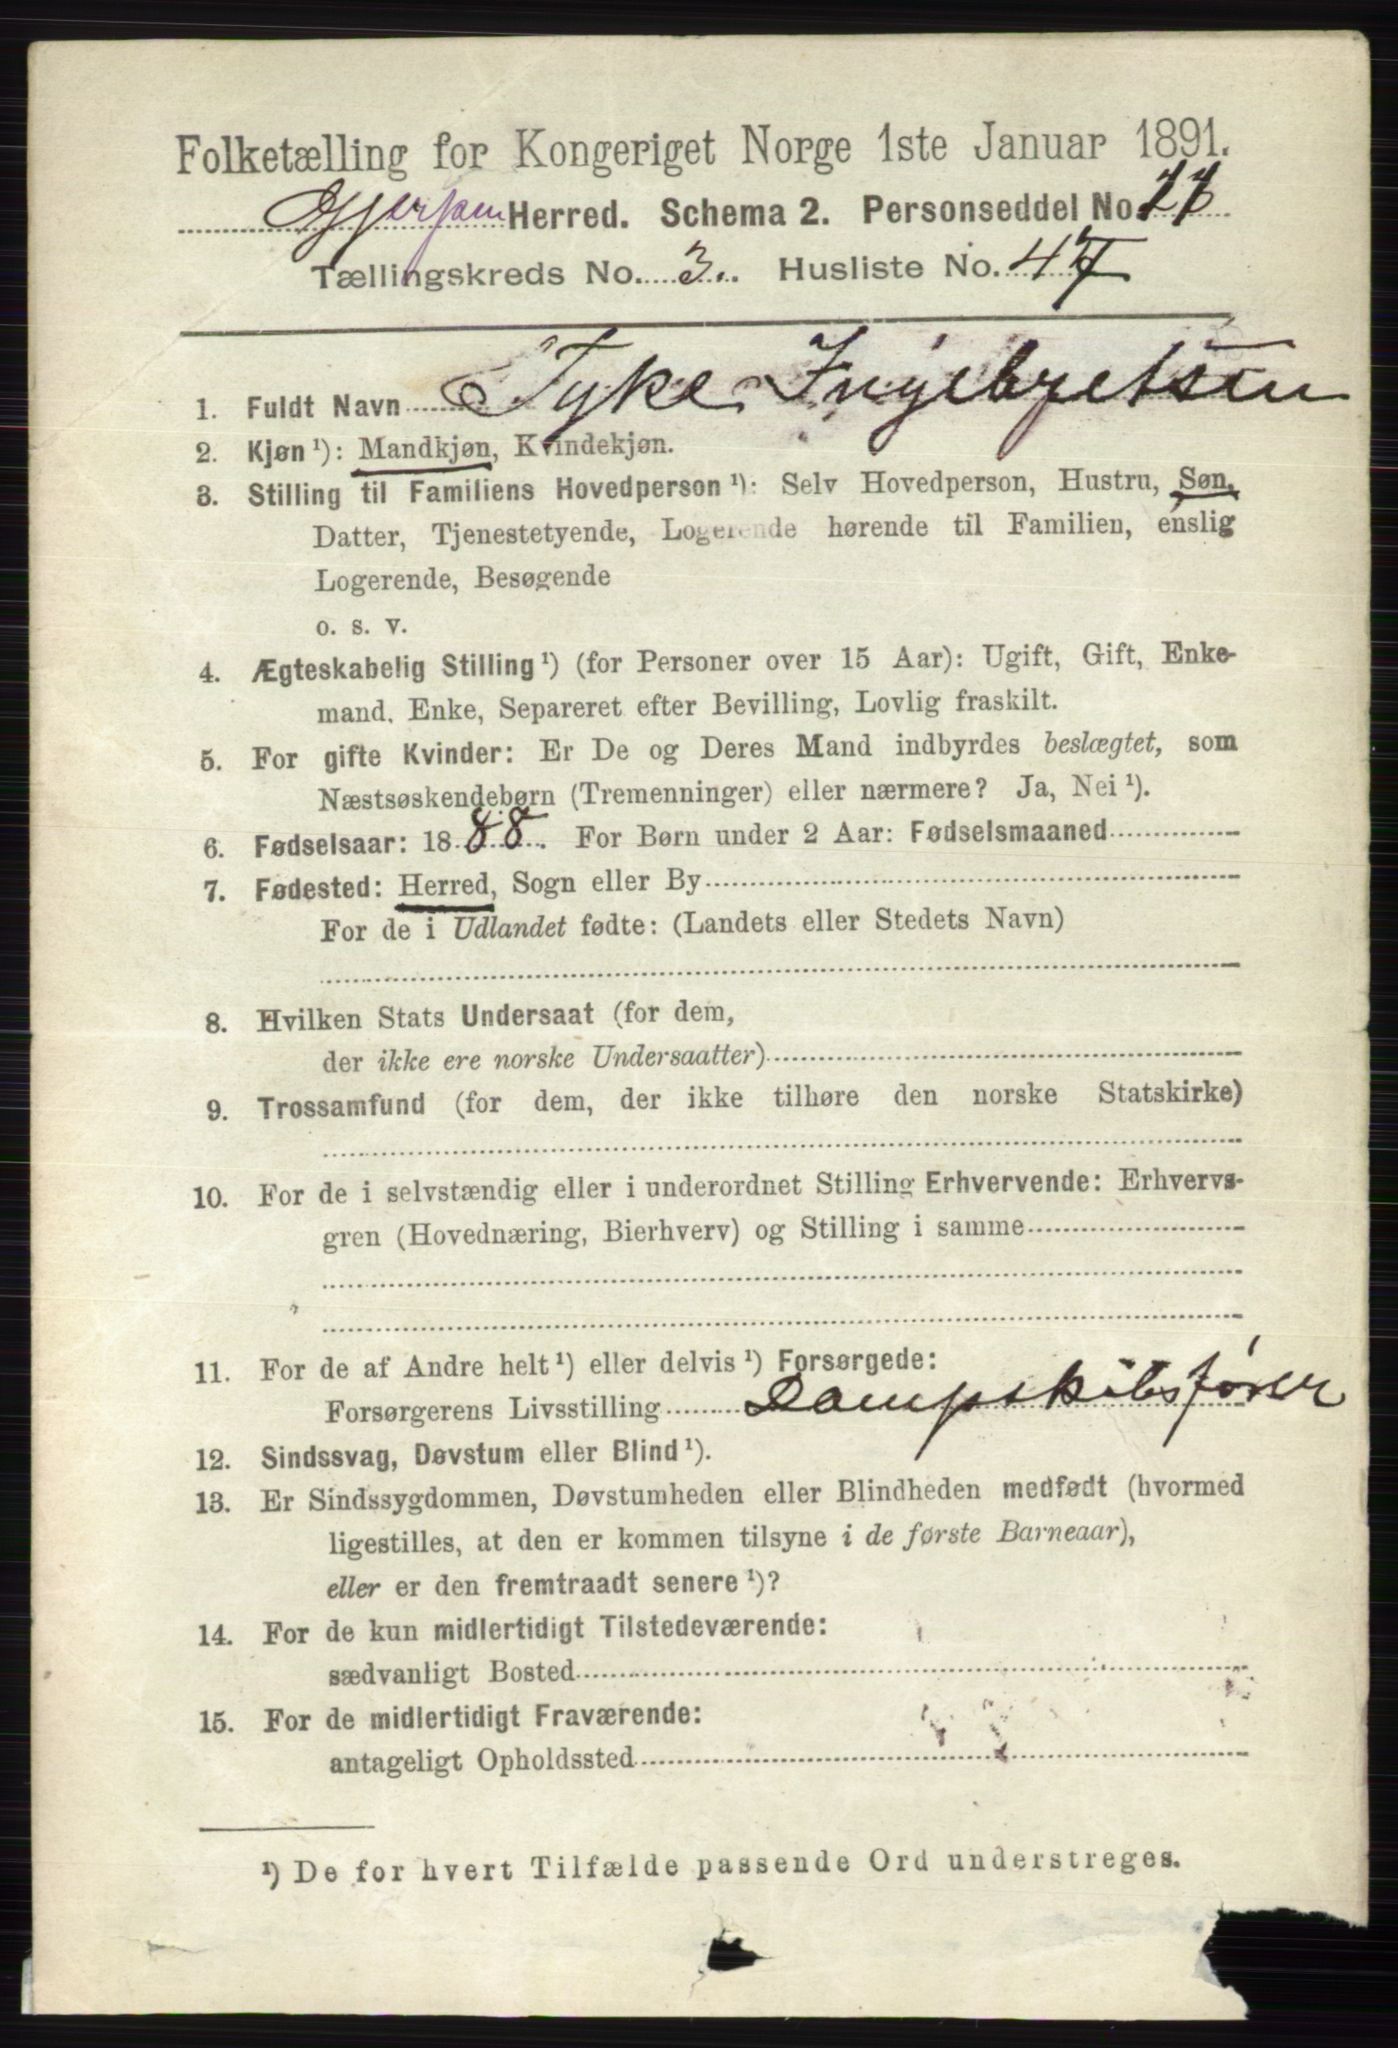 Folketælling for Kongeriget Norge 1ste Januar 1891.
Gjerpen Herred. Schema 2. Personseddel No.
Tællingskreds No. 3. Husliste No. 47
1. Fuldt Navn Tyke Ingebretsen
2. Kjøn¹): Mandkjøn, Kvindekjøn.
3. Stilling til Familiens Hovedperson¹): Selv Hovedperson, Hustru, Søn,
Datter, Tjenestetyende, Logerende hørende til Familien, enslig
Logerende, Besøgende
o. s. v.
4. Ægteskabelig Stilling¹) (for Personer over 15 Aar): Ugift, Gift, Enke-
mand, Enke, Separeret efter Bevilling, Lovlig fraskilt.
5. For gifte Kvinder: Er De og Deres Mand indbyrdes beslægtet, som
Næstsøskendebørn (Tremenninger) eller nærmere? Ja, Nei¹).
6. Fødselsaar: 1888. For Børn under 2 Aar: Fødselsmaaned
7. Fødested: Herred, Sogn eller By
For de i Udlandet fødte: (Landets eller Stedets Navn)
8. Hvilken Stats Undersaat (for dem,
der ikke ere norske Undersaatter)
9. Trossamfund (for dem, der ikke tilhøre den norske Statskirke)
10. For de i selvstændig eller i underordnet Stilling Erhvervende: Erhvervs-
gren (Hovednæring, Bierhverv) og Stilling i samme
11. For de af Andre helt¹) eller delvis¹) Forsørgede:
Forsørgerens Livsstilling Dampskibsfører
12. Sindssvag, Døvstum eller Blind¹).
13. Er Sindssygdommen, Døvstumheden eller Blindheden medfødt (hvormed
ligestilles, at den er kommen tilsyne i de første Barneaar),
eller er den fremtraadt senere¹)?
14. For de kun midlertidigt Tilstedeværende:
sædvanligt Bosted
15. For de midlertidigt Fraværende:
antageligt Opholdssted
¹) De for hvert Tilfælde passende Ord understreges.